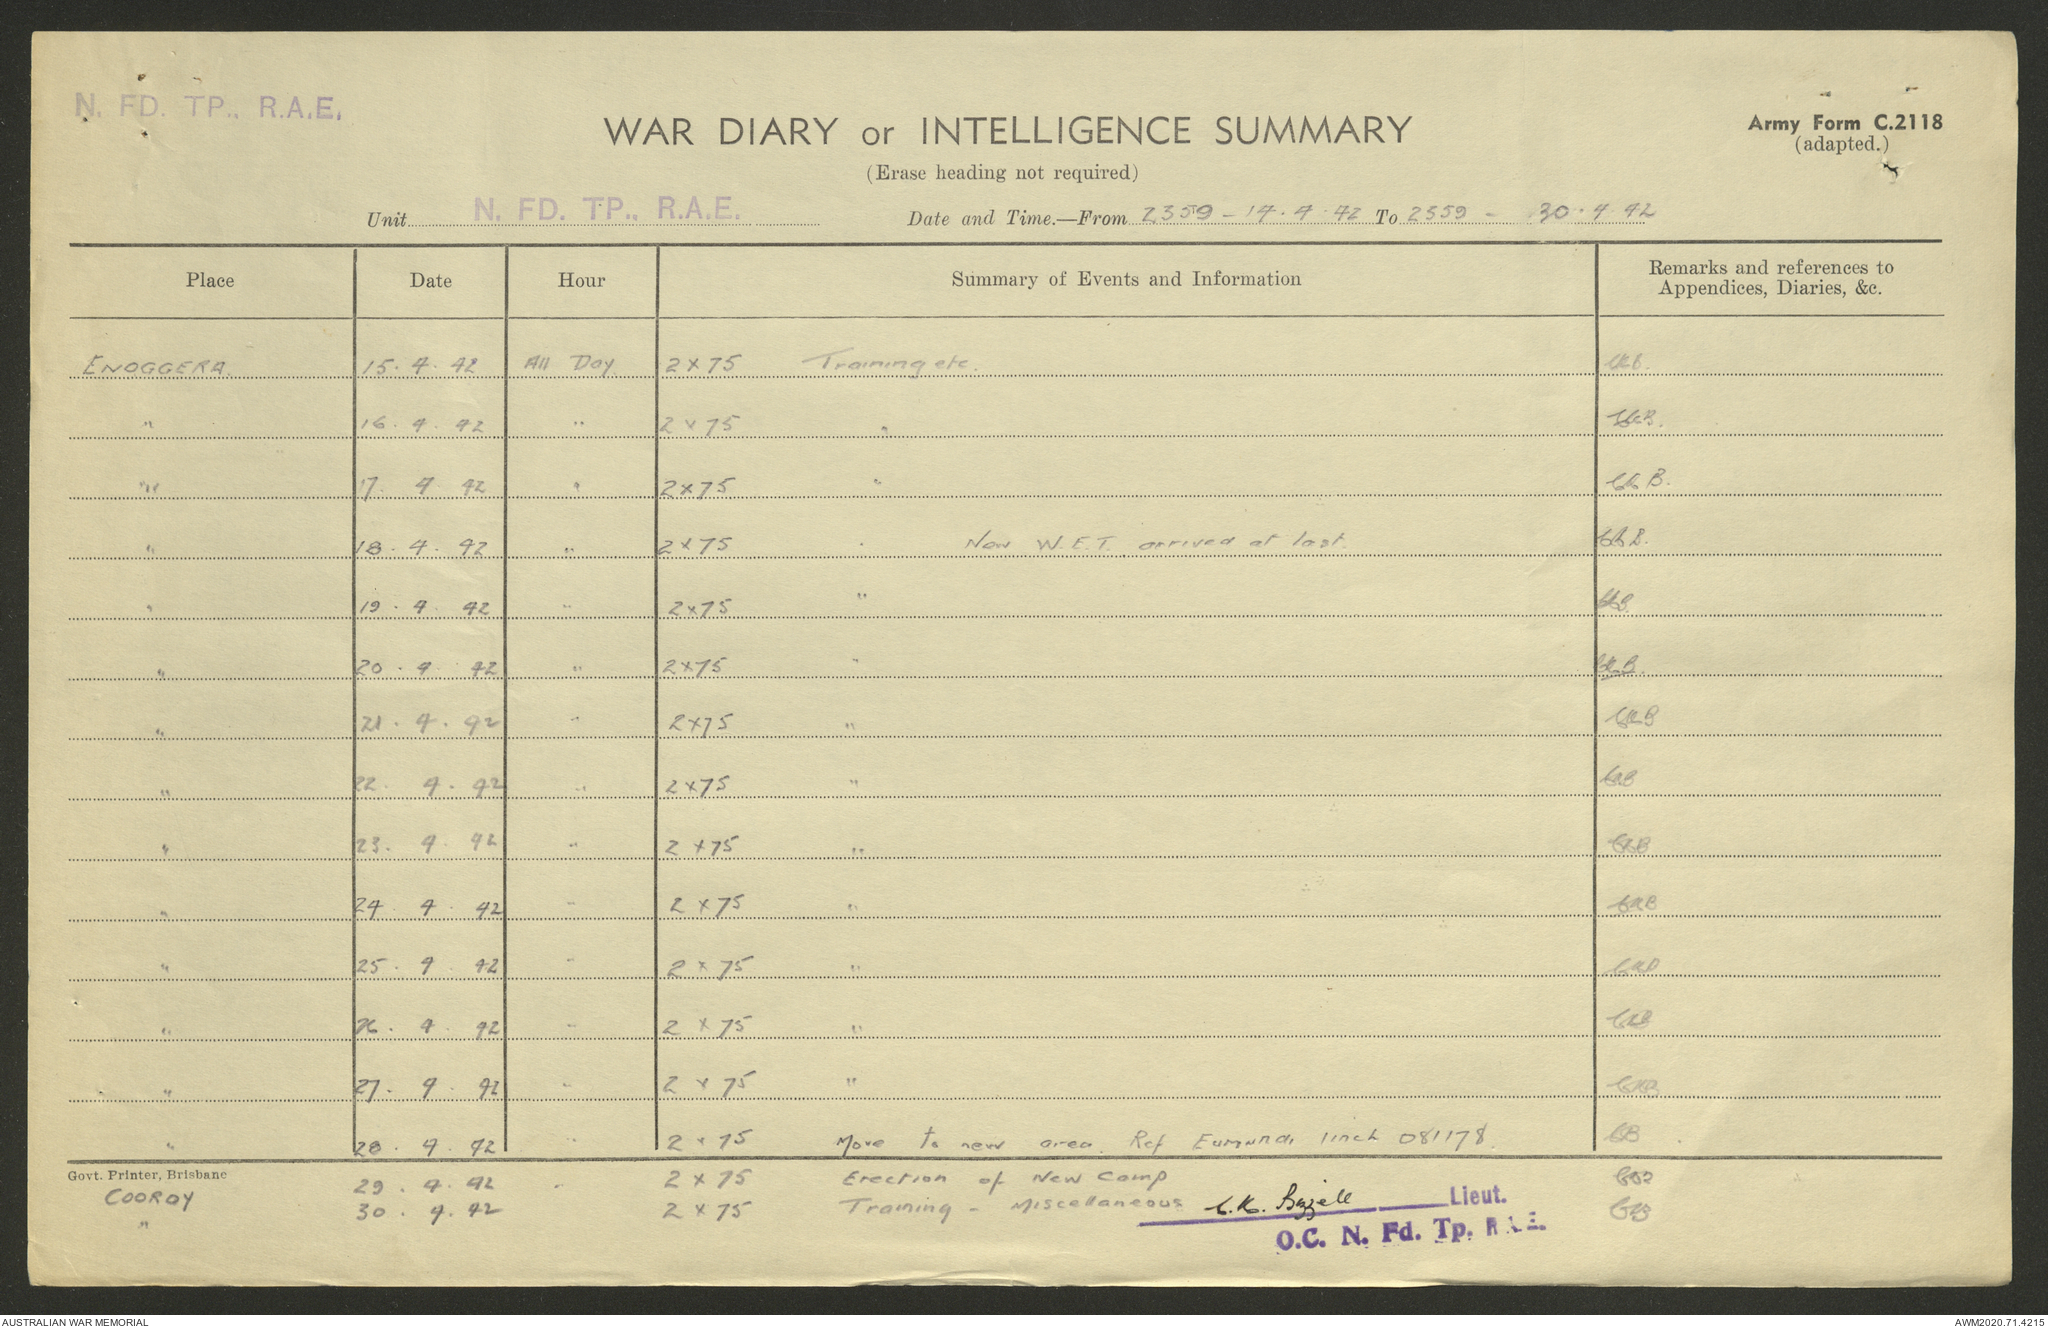 N. FD. TP., R.A.E.
WAR DIARY or INTELLIGENCE SUMMARY
Army Form C.2118
(adapted.)
(Erase heading not required)
Unit N. FD. TP., R.A.E. Date and Time.—From 2359 - 14.4.42 To 2359 - 30.4.42
Place Date Hour Summary of Events and Information Remarks and references to
Appendices, Diaries, &c.
ENOGGERA. 15.4.42 All Day 2 x 75 Training etc. CKB.
" 16.4.42 " 2 x 75 " CKB.
" 17.4.42 " 2 x 75 " CKB.
" 18.4.42 " 2 x 75 " New W.E.T. arrived at last. CKB.
" 19.4.42 " 2 x 75 " CKB.
" 20.4.42 " 2 x 75 " CKB.
" 21.4.42 " 2 x 75 " CKB
" 22.4.42 " 2 x 75 " CKB
" 23.4.42 " 2 x 75 " CKB
" 24.4.42 " 2 x 75 " CKB
" 25.4.42 " 2 x 75 " CKB
" 26.4.42 " 2 x 75 " CKB
" 27.4.42 " 2 x 75 " CKB
" 28.4.42 " 2 x 75 Move to new area. Ref Eumundi 1 inch 081178. CKB
Govt. Printer, Brisbane
COOROY 29.4.42 " 2 x 75 Erection of New Camp CKB
" 30.4.42 2 x 75 Training - Miscellaneous CKB
C.K. Lieut.
O.C. N. Fd. Tp. R.A.E.
AUSTRALIAN WAR MEMORIAL
AWM2020.71.4215